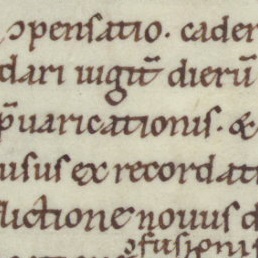 ꝯpensatio. cader
dari iugit̄ dierū
p̄uaricationis. &
usus ex recordati
fluctione nouus d
ꝯfusionis